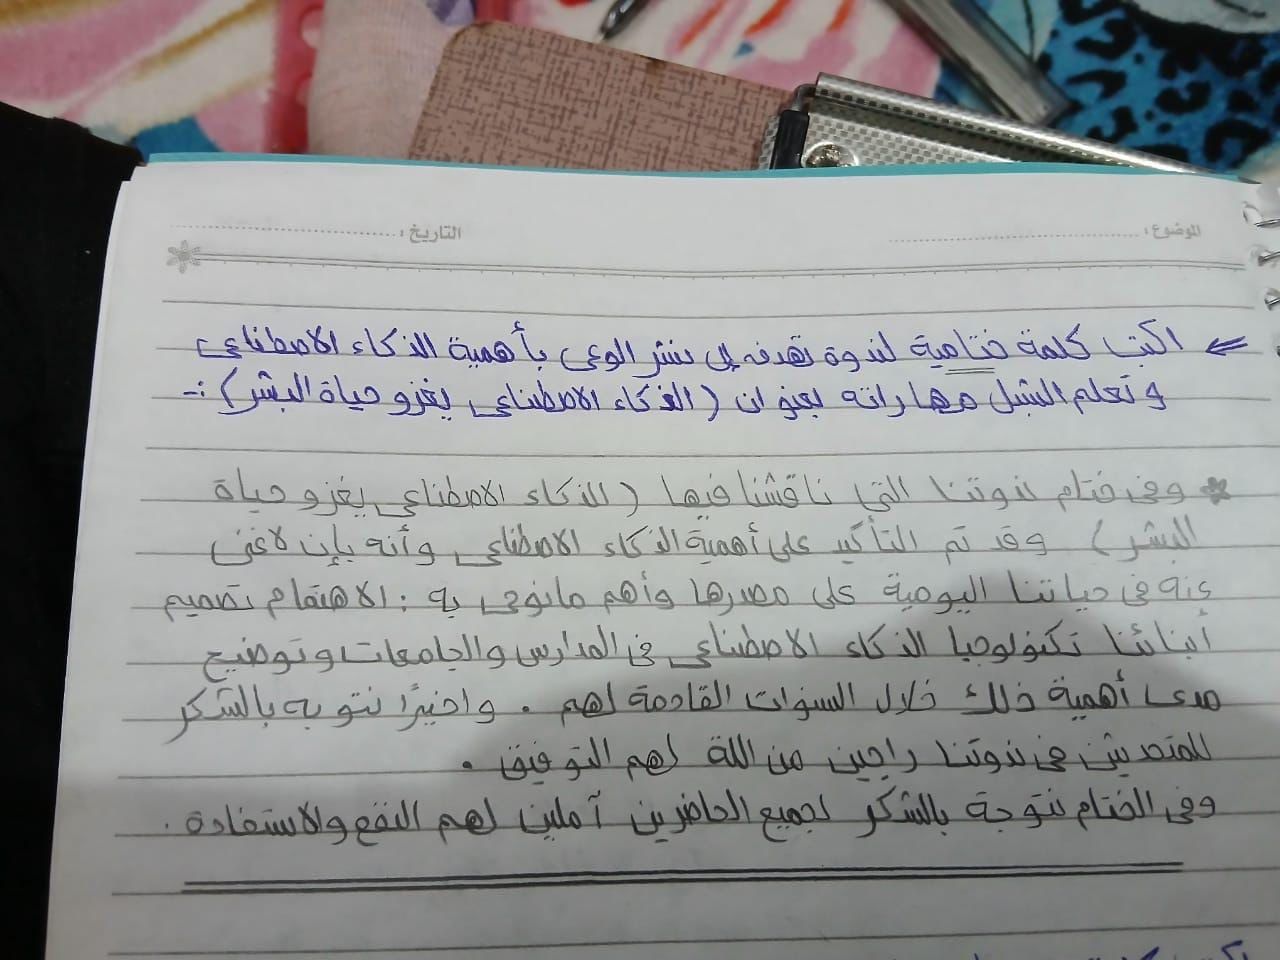 الموضوع: التاريخ:
اكتب كلمة ختامية لندوة تهدف إلى نشر الوعى بأهمية الذكاء الاصطناعى
وتعلم السُبل مهاراته بعنوان (الذكاء الاصطناعى يغزو حياة البشر) :-
* وفى ختام ندوتنا التى ناقشنا فيها (الذكاء الاصطناعى يغزو حياة
البشر) وقد تم التأكيد على أهمية الذكاء الاصطناعى وأنه بإن لاغنى
عنه فى حياتنا اليومية على مصرها وأهم مانوصى به : الاهتمام تصميم
أبنائنا تكنولوجيا الذكاء الاصطناعى فى المدارس والجامعات وتوضيح
مدى أهمية ذلك خلال السنوات القادمة لهم . واخيرًا نتوجه بالشكر
للمتحدثين فى ندوتنا راجين من الله لهم التوفيق .
وفى الختام نتوجة بالشكر لجميع الحاضرين آملين لهم النفع والاستفادة .